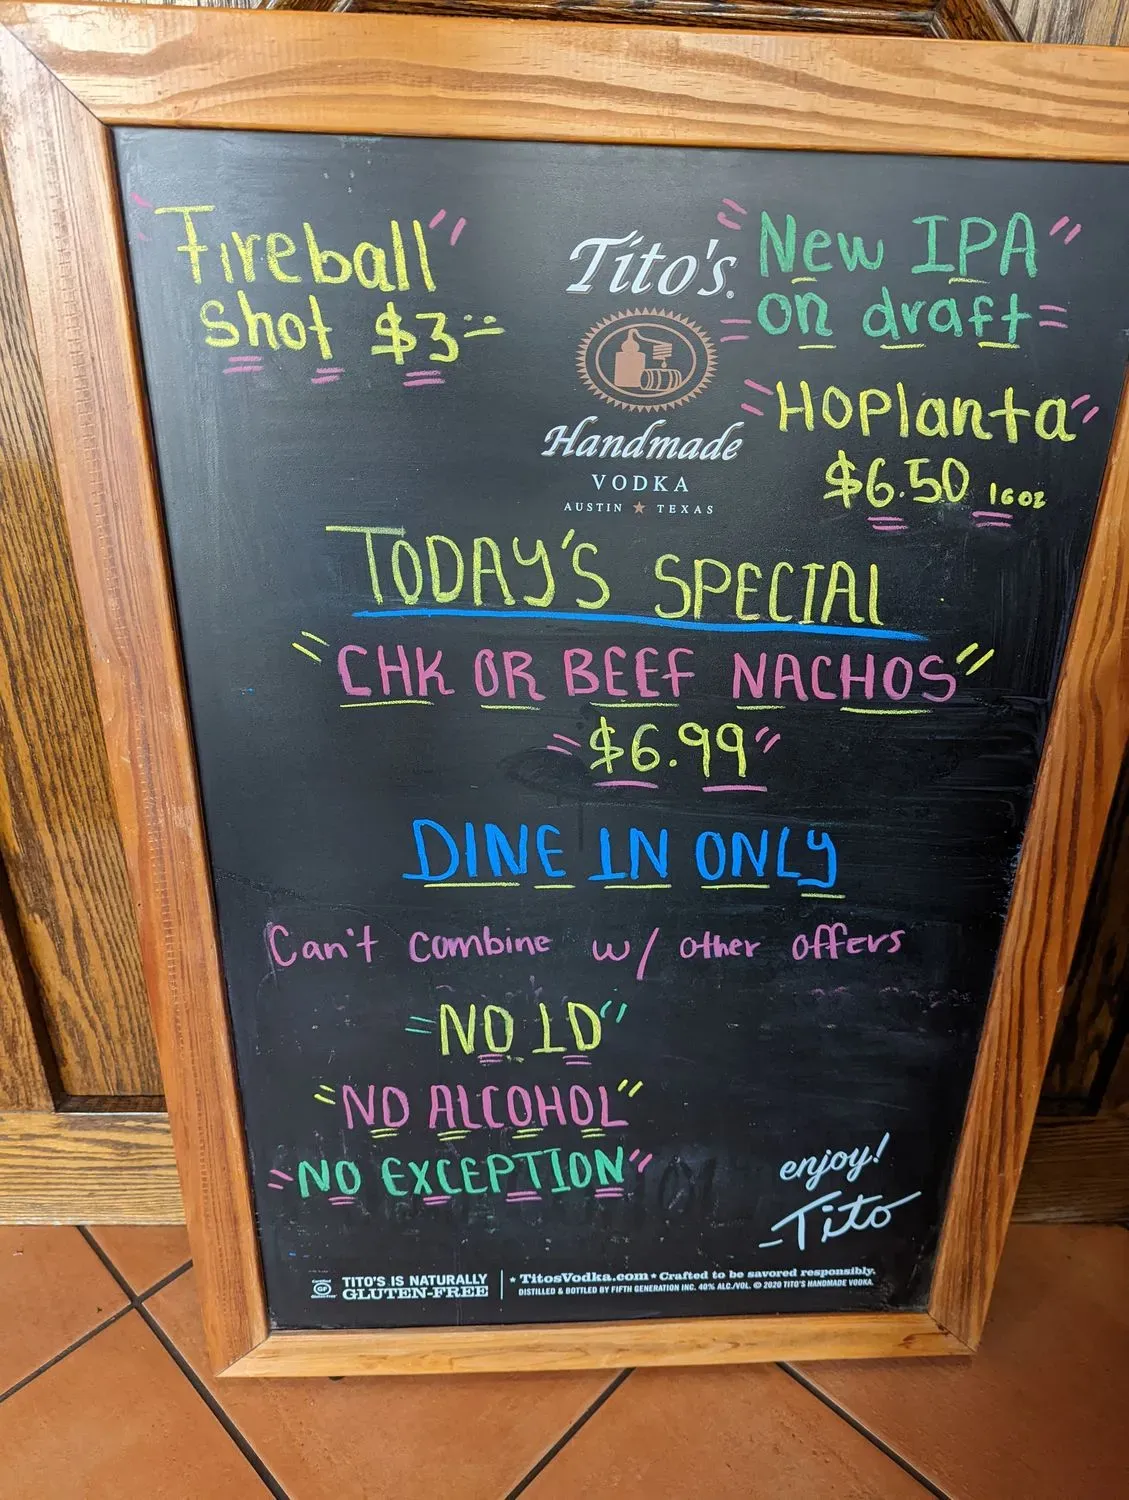 "Fireball"
Shot $3
Tito's
Handmade
VODKA
AUSTIN ★ TEXAS
"New IPA"
on draft
"HOPlanta"
$6.50 16oz
TODAY'S SPECIAL
"CHK OR BEEF NACHOS"
"$6.99"
DINE IN ONLY
Can't combine w/ other offers
"NO ID"
"NO ALCOHOL"
"NO EXCEPTION"
enjoy!
-Tito
Certified
GF
Gluten-Free
TITO'S IS NATURALLY
GLUTEN-FREE
★ TitosVodka.com ★ Crafted to be savored responsibly.
DISTILLED & BOTTLED BY FIFTH GENERATION INC. 40% ALC./VOL. © 2020 TITO'S HANDMADE VODKA.